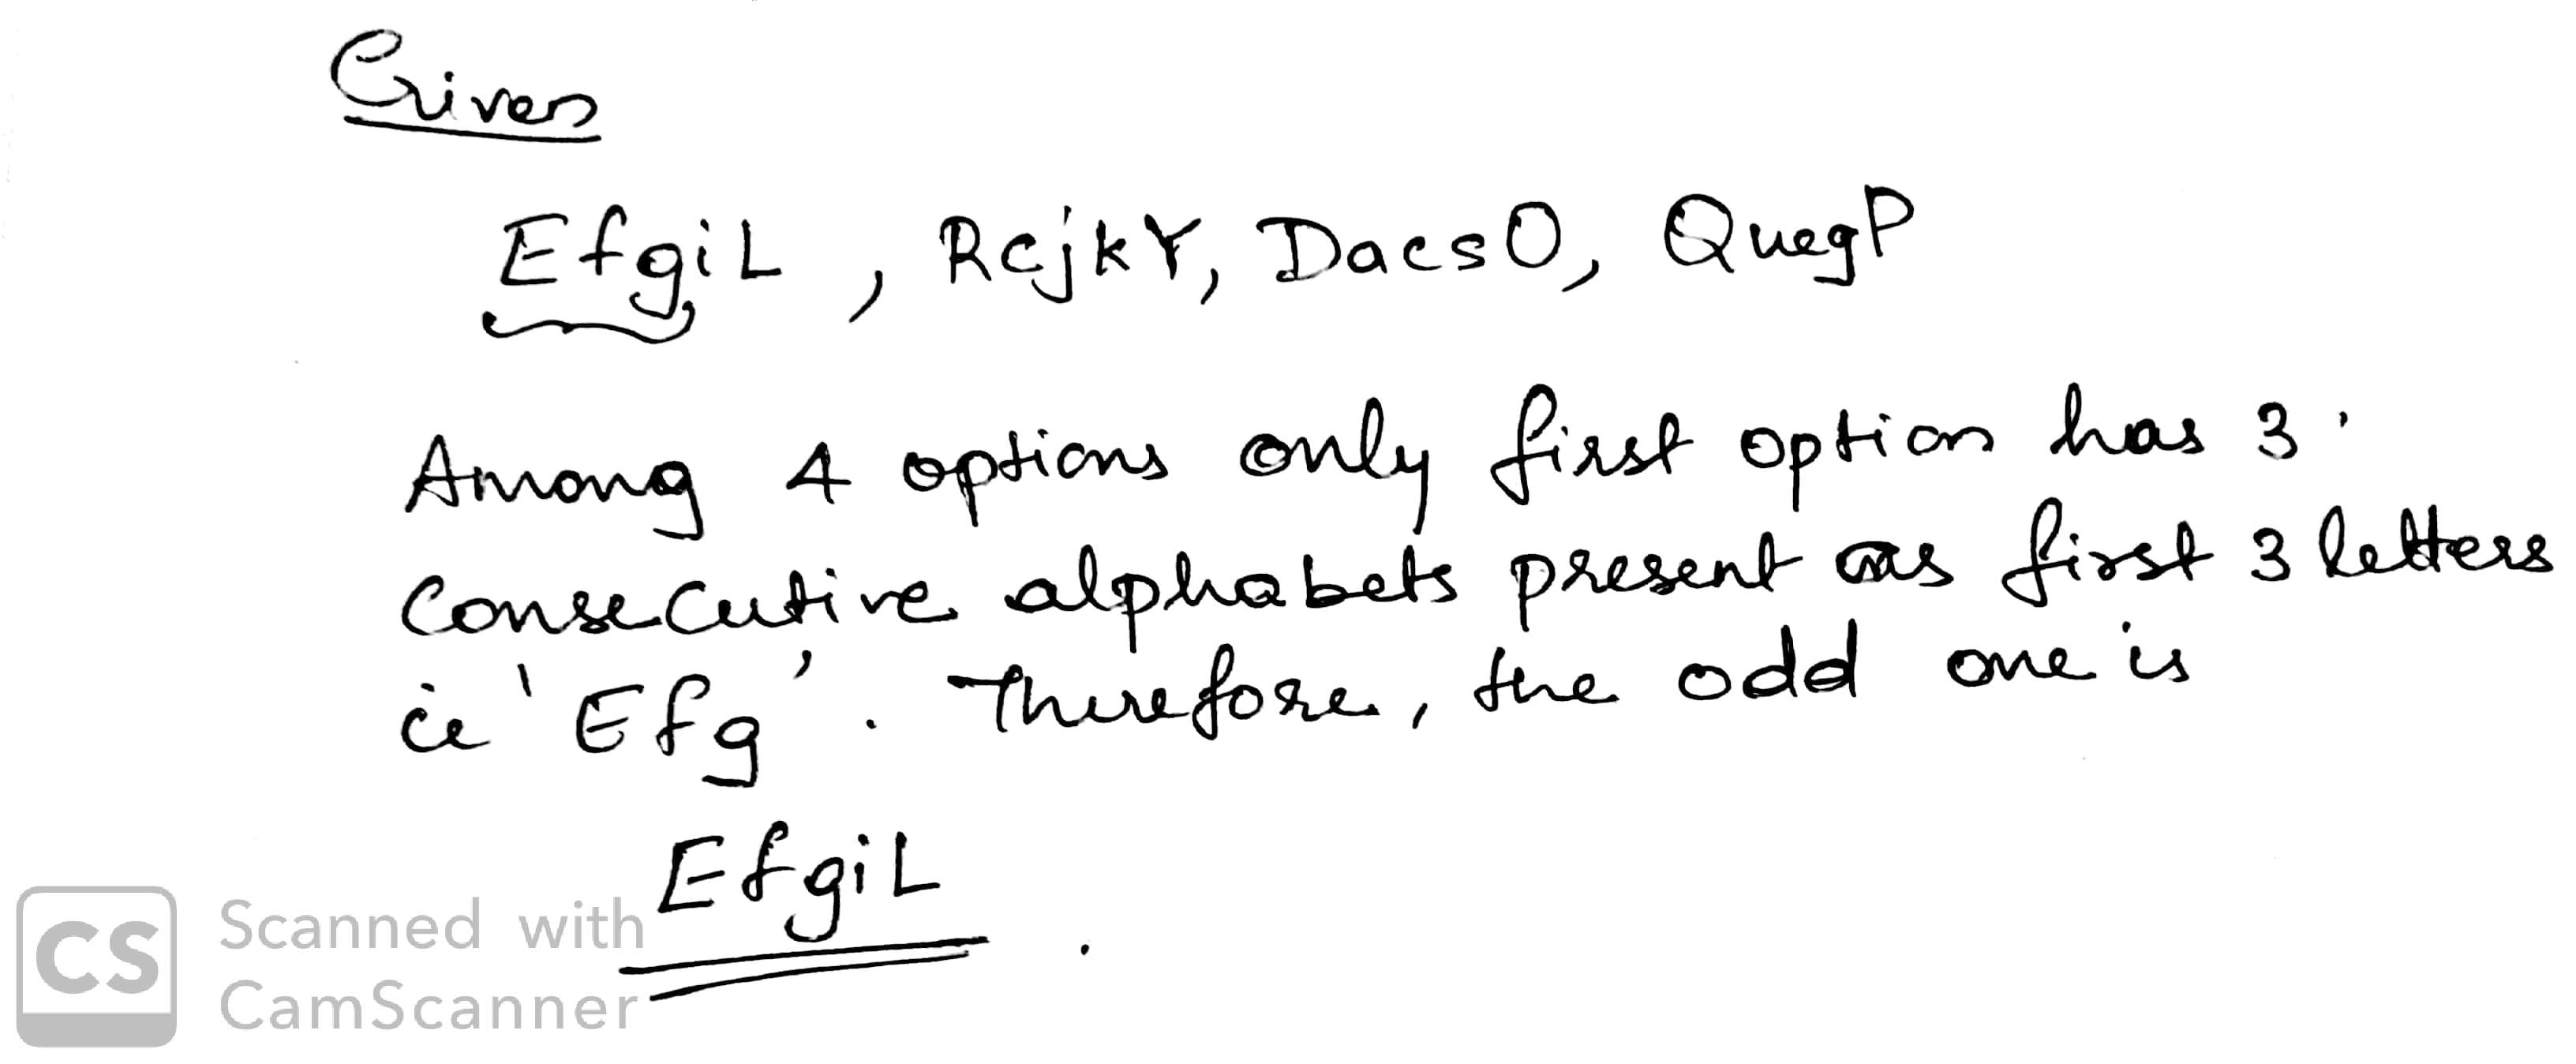 Given
EfgiL , RcjkY, DacsO, QuegP
Among 4 options only first option has 3
Consecutive alphabets present as first 3 letters
ie 'Efg'. Therefore, the odd one is
EfgiL .
CS Scanned with
CamScanner